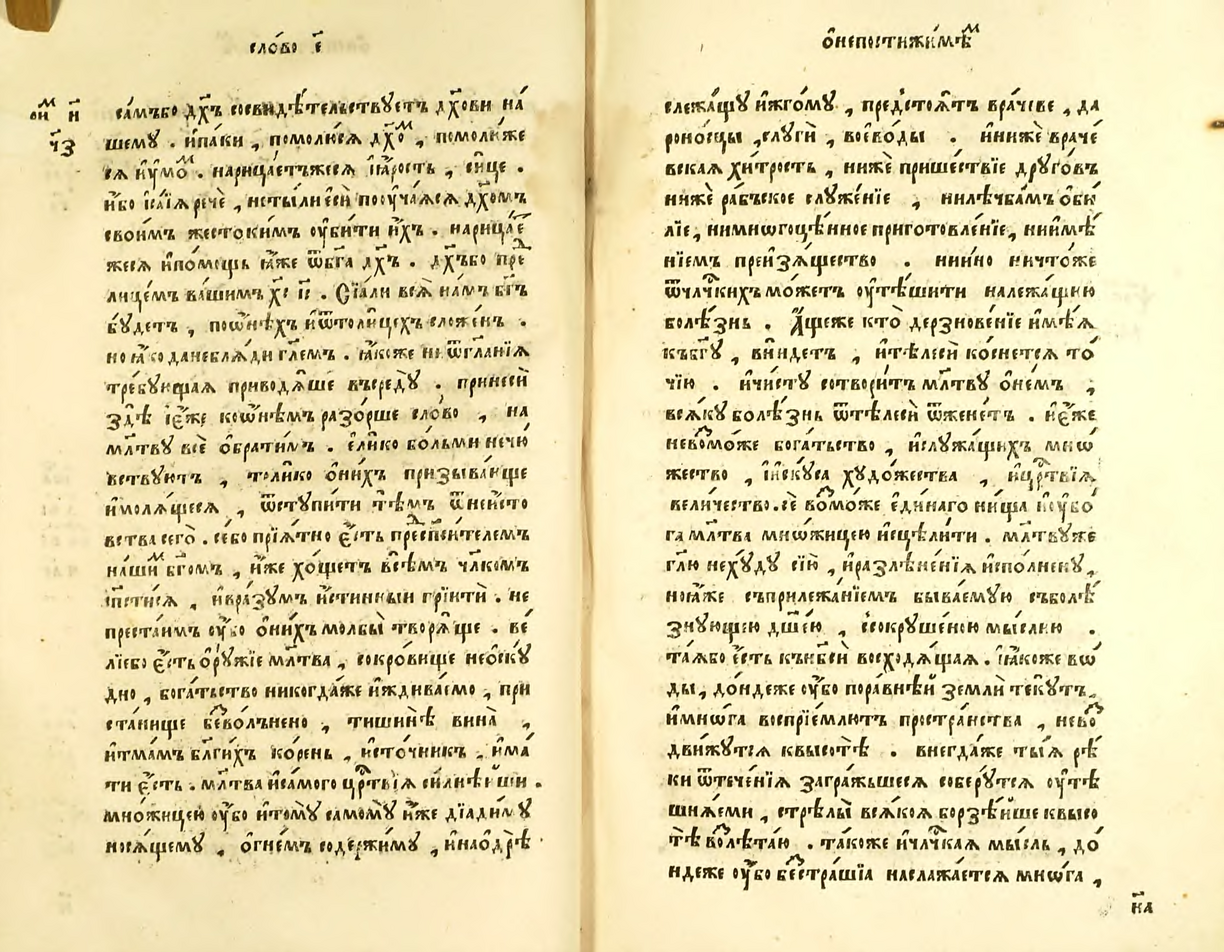 сло́во є҃
ри́м и҃
ч҃з
са́мъбо дх҃ъ сосвидѣ́тельствуетъ дх҃ови на́
шемꙋ . и҆па́ки , помолю́ся дх҃ом , помолю́же
сѧ и҆ꙋмо́м . нарица́етъжесѧ ꙗ҆́рость , си́це .
и҆́бо і҆са́їѧ речѐ , не ты́ лиесѝ поꙋча́ѧсѧ дх҃омъ
свои́мъ жесто́кимъ ᲂу҆би́ти и҆̀хъ . нарица́е
жесѧ и҆по́мощь ꙗ҆́же ѿбг҃а дх҃ъ . дх҃ъбо пред
лице́мъ ва́шимъ хс҃ іс҃ . Сїѧ́ли всѧ̀ на́мъ бг҃ъ
бꙋ́детъ , поѡ҆нѣ́хъ и҆ѿтоли́цехъ сложе́нъ .
но ꙗ҆́ко данеблѧ́ди гл҃емъ . ꙗ҆́коже не ѿгла́нїѧ
тре́бꙋющаѧ приводѧ́ще въсредꙋ̀ . принесѝ
здѣ̀ і҆є҆́же коѡ҆нѣ́мъ разо́рше сло́во , на
мл҃твꙋ всѐ ѡ҆брати́мъ . є҆ли́ко бо́льми нечю́
вствꙋютъ , толи́ко ѻ҆ни́хъ призыва́юще
и҆молѧ́щесѧ , ѿстꙋпи́ти тѣ́мъ ѿнеи́сто
вства сего̀ . се́бо прїѧ́тно є҆́сть пред спси́телемъ
на́шим бг҃омъ , и҆́же хо́щетъ всѣ́мъ чл҃комъ
спсти́сѧ , и҆вразꙋ́мъ и҆́стинныи прїитѝ . не
преста́нмъ ᲂу҆́бо ѻ҆ни́хъ молбы̀ творѧ́ще . ве́
лїебо є҆́сть ѻ҆рꙋ́жїе мл҃тва , сокро́вище неѡскꙋ́
дно , бога́тьство никогда́же и҆ждива́емо , при
ста́нище безво́лънено , тишинѣ̀ вина̀ ,
и҆тма́мъ бл҃ги́хъ ко́рень , и҆сто́чникъ , и҆ма́
ти є҆́сть . мл҃тва и҆самого црⷭ҇твїѧ сильнѣ́иши .
мно́жицею ᲂу҆́бо и҆томꙋ̀ самомꙋ̀ и҆́же дїади́мꙋ
носѧ́щемꙋ , ѻ҆гне́мъ содержи́мꙋ , и҆наодрѣ̀
ѡ҆непостижи́мѣм
слежа́щꙋ и҆жго́мꙋ , предстоѧ́тъ вра́чеве , да
роно́сцы , слꙋгѝ , воево́ды . и҆нижѐ враче́
вскаѧ хи́трость , нижѐ прише́ствїе дрꙋго́въ
нижѐ ра́бъское слꙋже́нїе , нилѣчба́мъ ѻ҆би́
лїе , нимногоцѣ́нное приготовле́нїе , ниимѣ́
нїемъ преизѧ́щество . нии́но ничто́же
ѿчл҃ческихъ мо́жетъ ᲂу҆тѣ́шити належа́щꙋю
болѣ́знь . А҆́щеже кто̀ дерзнове́нїе и҆мѣ́ѧ
къбг҃ꙋ , вни́детъ , и҆тѣ́лесѝ косне́тсѧ то́
чїю . и҆чи́стꙋ сотвори́тъ мл҃твꙋ ѡ҆не́мъ ,
всѧ́кꙋ болѣ́знь ѿтѣ́лесѝ ѿжене́тъ . и҆є҆́же
невозмо́же бога́тьство , и҆слꙋжа́щихъ мно́
жество , і҆и҆скꙋ́са хꙋдо́жества , и҆црⷭ҇твїѧ
вели́чество . сѐ возмо́же є҆ди́наго ни́ща и҆ᲂу҆бо́
га мл҃тва мно́жицею и҆сцѣли́ти . мл҃твꙋже
гл҃ю нехꙋ́дꙋ сїю̀ , и҆разлѣне́нїѧ и҆спо́лненꙋ ,
ноꙗ҆́же съприлежа́нїемъ быва́емꙋю съболѣ́
знꙋющею дш҃е́ю , ссокрꙋше́ною мы́слию .
та́ѧбо є҆́сть кънб҃си восходѧ́щаѧ . ꙗ҆́коже во́
ды , до́ндеже ᲂу҆́бо поравнѣ́й землѝ текꙋ́тъ ,
и҆мно́га воспрїе́млютъ простра́нства , невоз
дви́жꙋтсѧ квысотѣ̀ . внегда́же ты́ѧ рѣ́
ки ѿтече́нїѧ загра́жьшесѧ соберꙋ́тсѧ ᲂу҆тѣ́
шнѧ́еми , стрѣлы̀ всѧ́коѧ борзѣ́йше квысо
тѣ̀ возлѣта́ю . та́коже и҆чл҃ческаѧ мы́сль , до́
ндеже ᲂу҆́бо безстра́шїа наслажа́етсѧ мно́га ,
к҃а